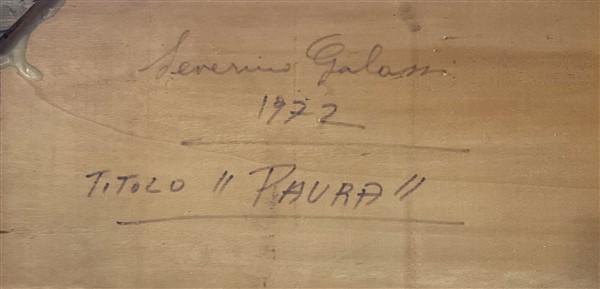 Severino Galassi
1972
TITOLO "PAURA"